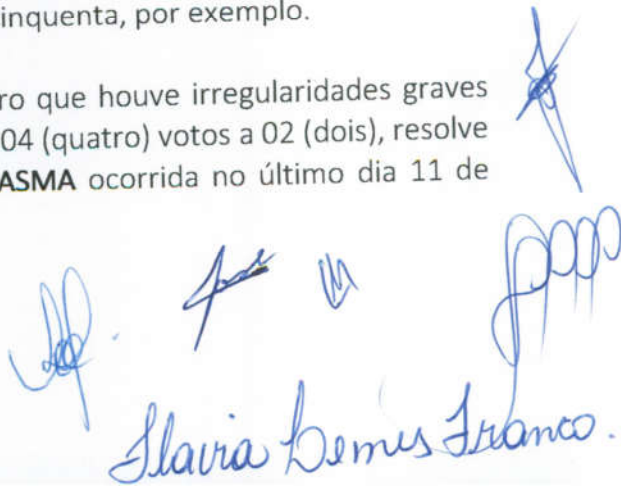 inquenta, por exemplo.
ro que houve irregularidades graves
04 (quatro) votos a 02 (dois), resolve
ASMA ocorrida no último dia 11 de
Flavia Lemes Franco.